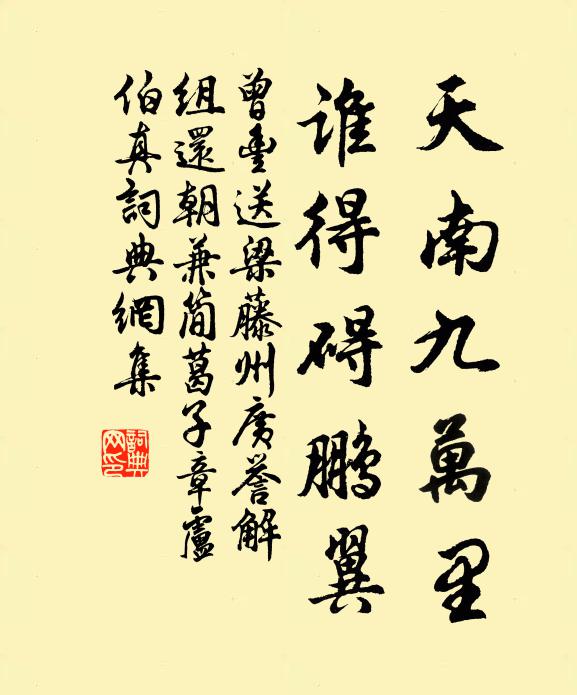 天南九萬里
誰得碍鵬翼
曾豊送梁藤州廣譽解
組還朝兼簡葛子章盧
伯真詞典網集
詞典网印